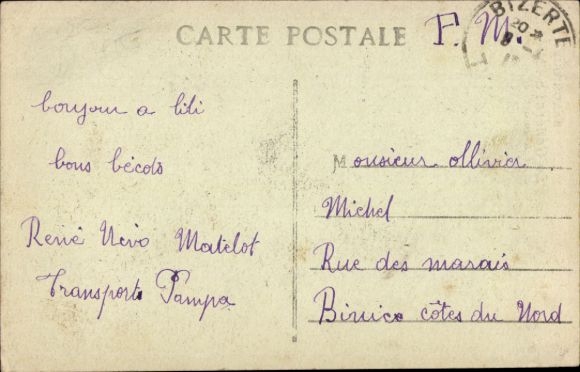 CARTE POSTALE
F. M.
BIZERTE
20
bonjour a lili
bons bécots
René Matelot
Transports Pampa
Monsieur Ollivier
Michel
Rue des marais
Binico côtes du Nord